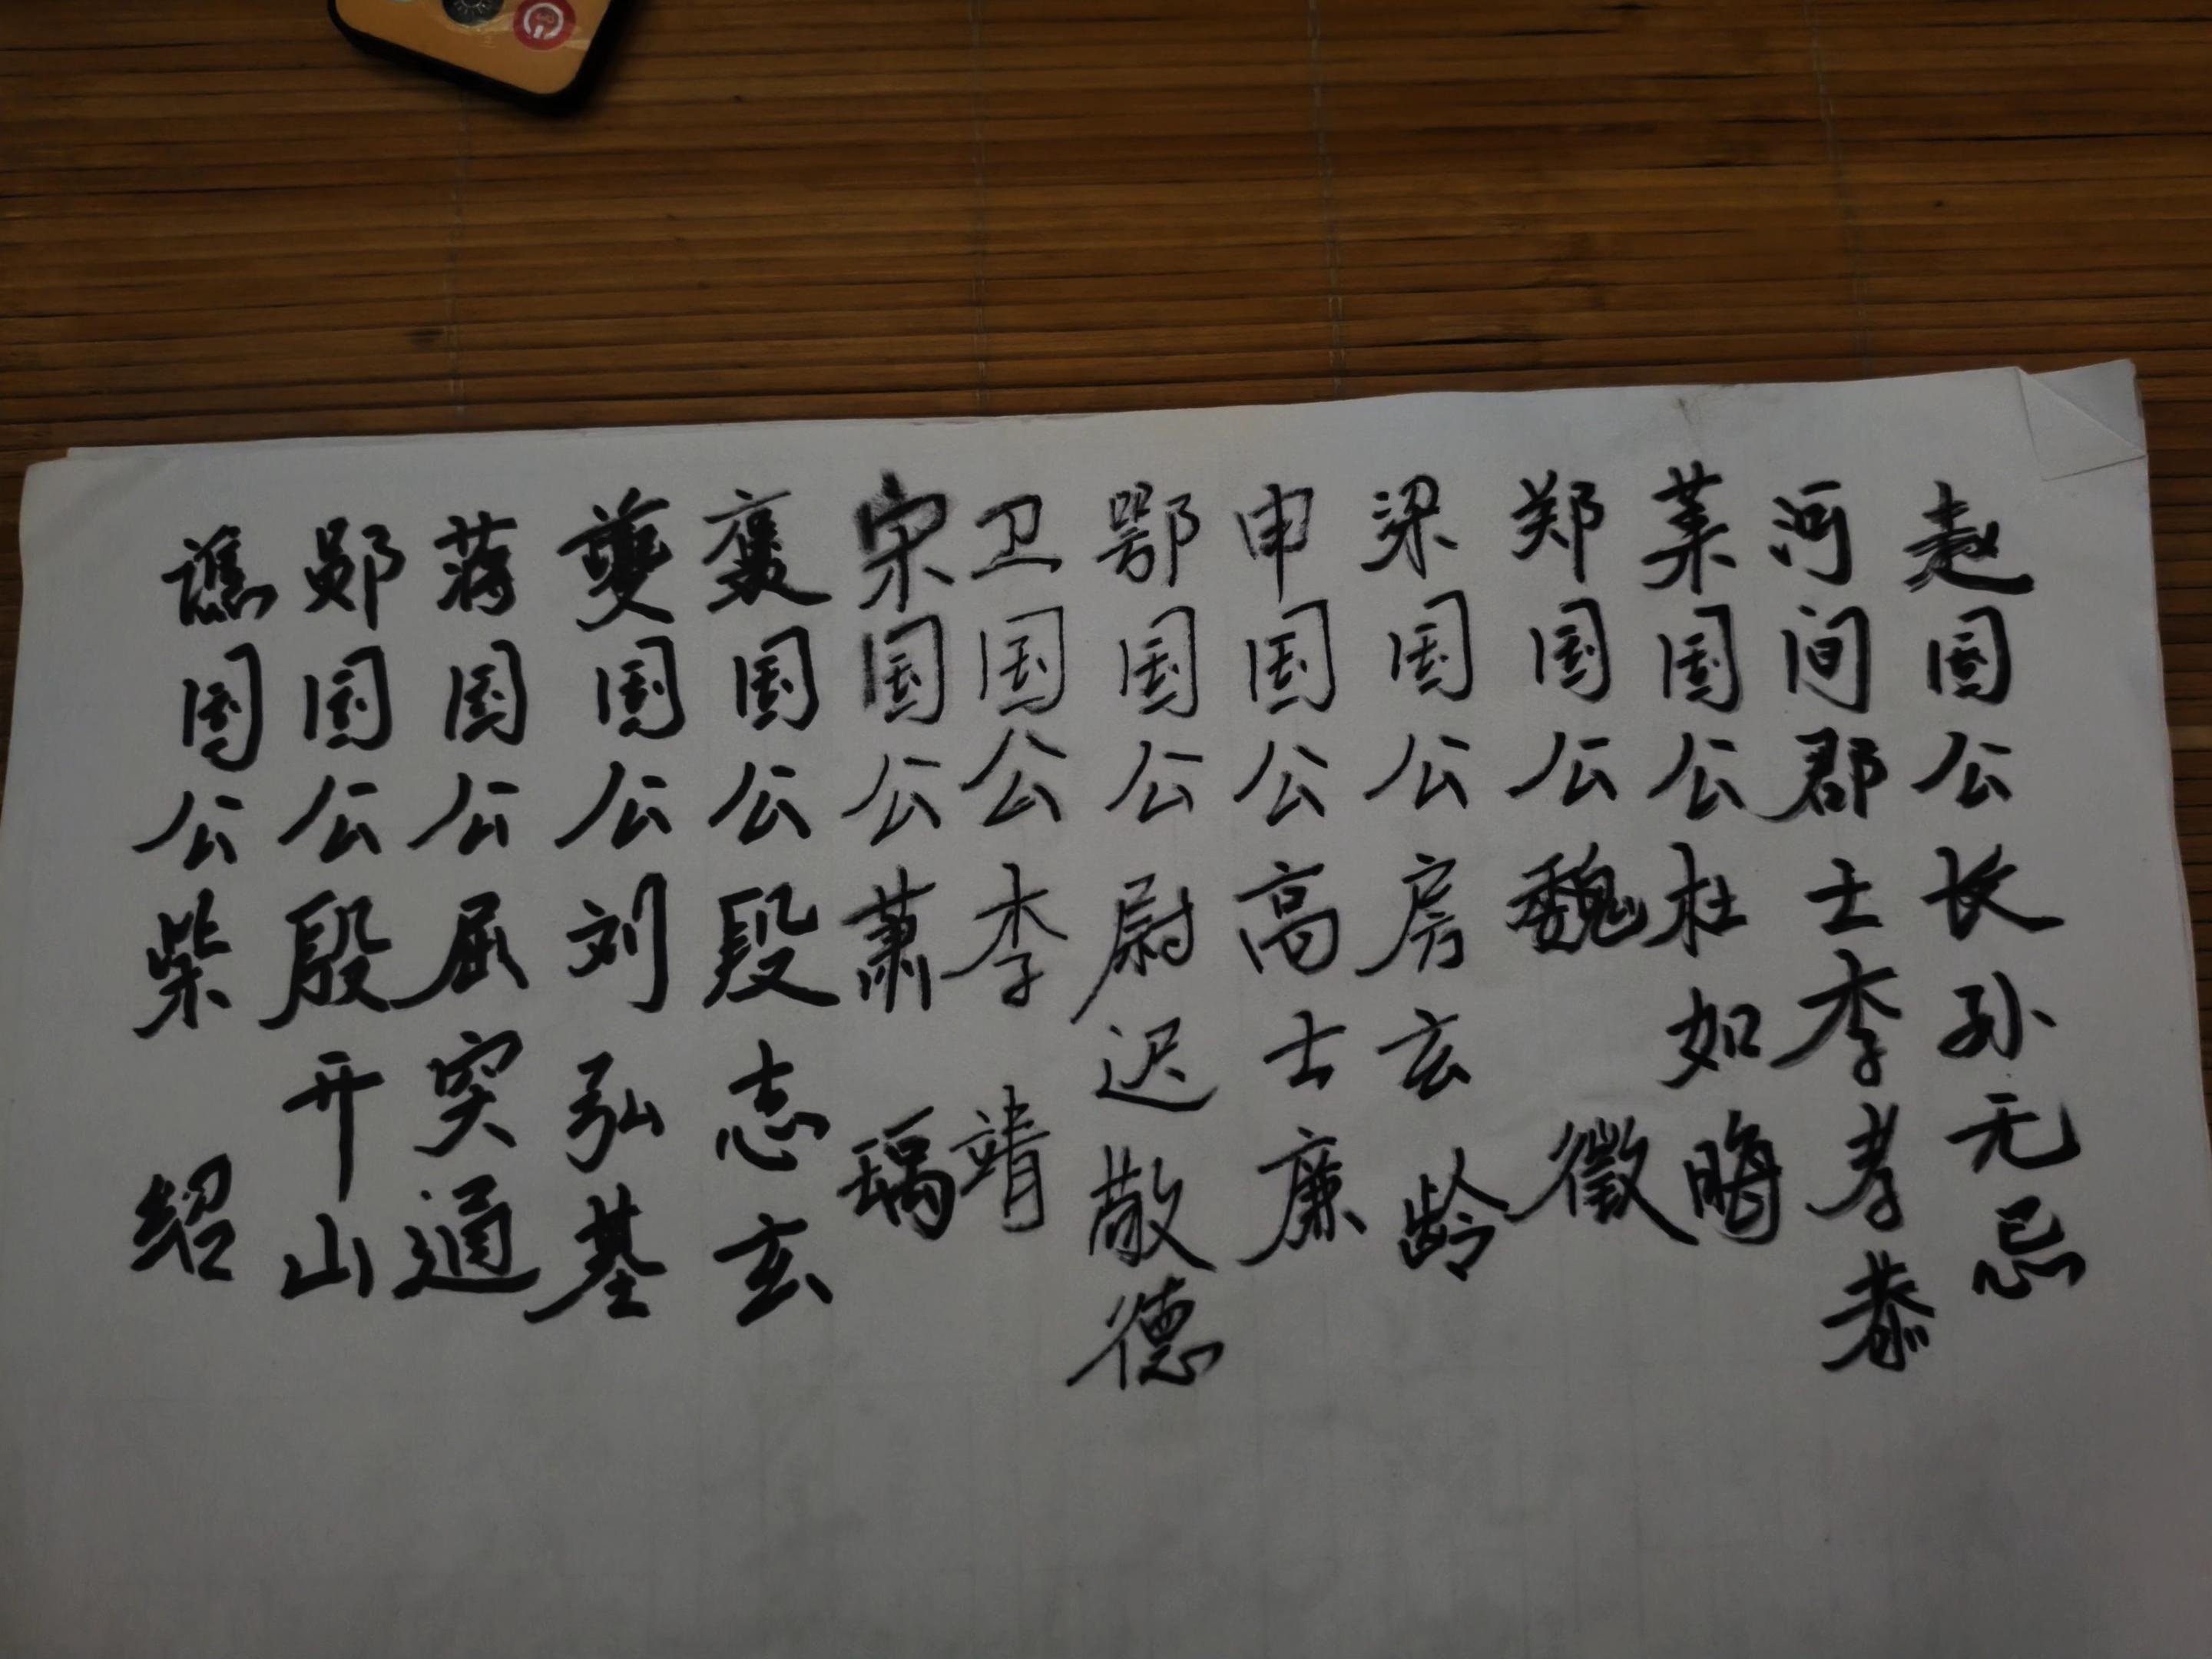 赵国公长孙无忌
河间郡士李孝恭
莱国公杜如晦
郑国公魏徵
梁国公房玄龄
申国公高士廉
鄂国公尉迟敬德
卫国公李靖
宋国公萧瑀
褒国公段志玄
夔国公刘弘基
蒋国公屈突通
郧国公殷开山
譙国公柴绍